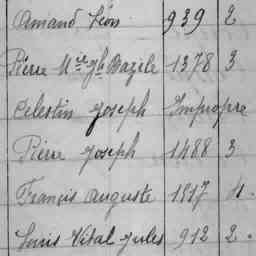 Amand Léon 939 2
Pierre Mie Jh Bazile 1378 3
Celestin Joseph Impropre
Pierre Joseph 1488 3
Francis Auguste 1817 4.
Louis Vital Jules 912 2.